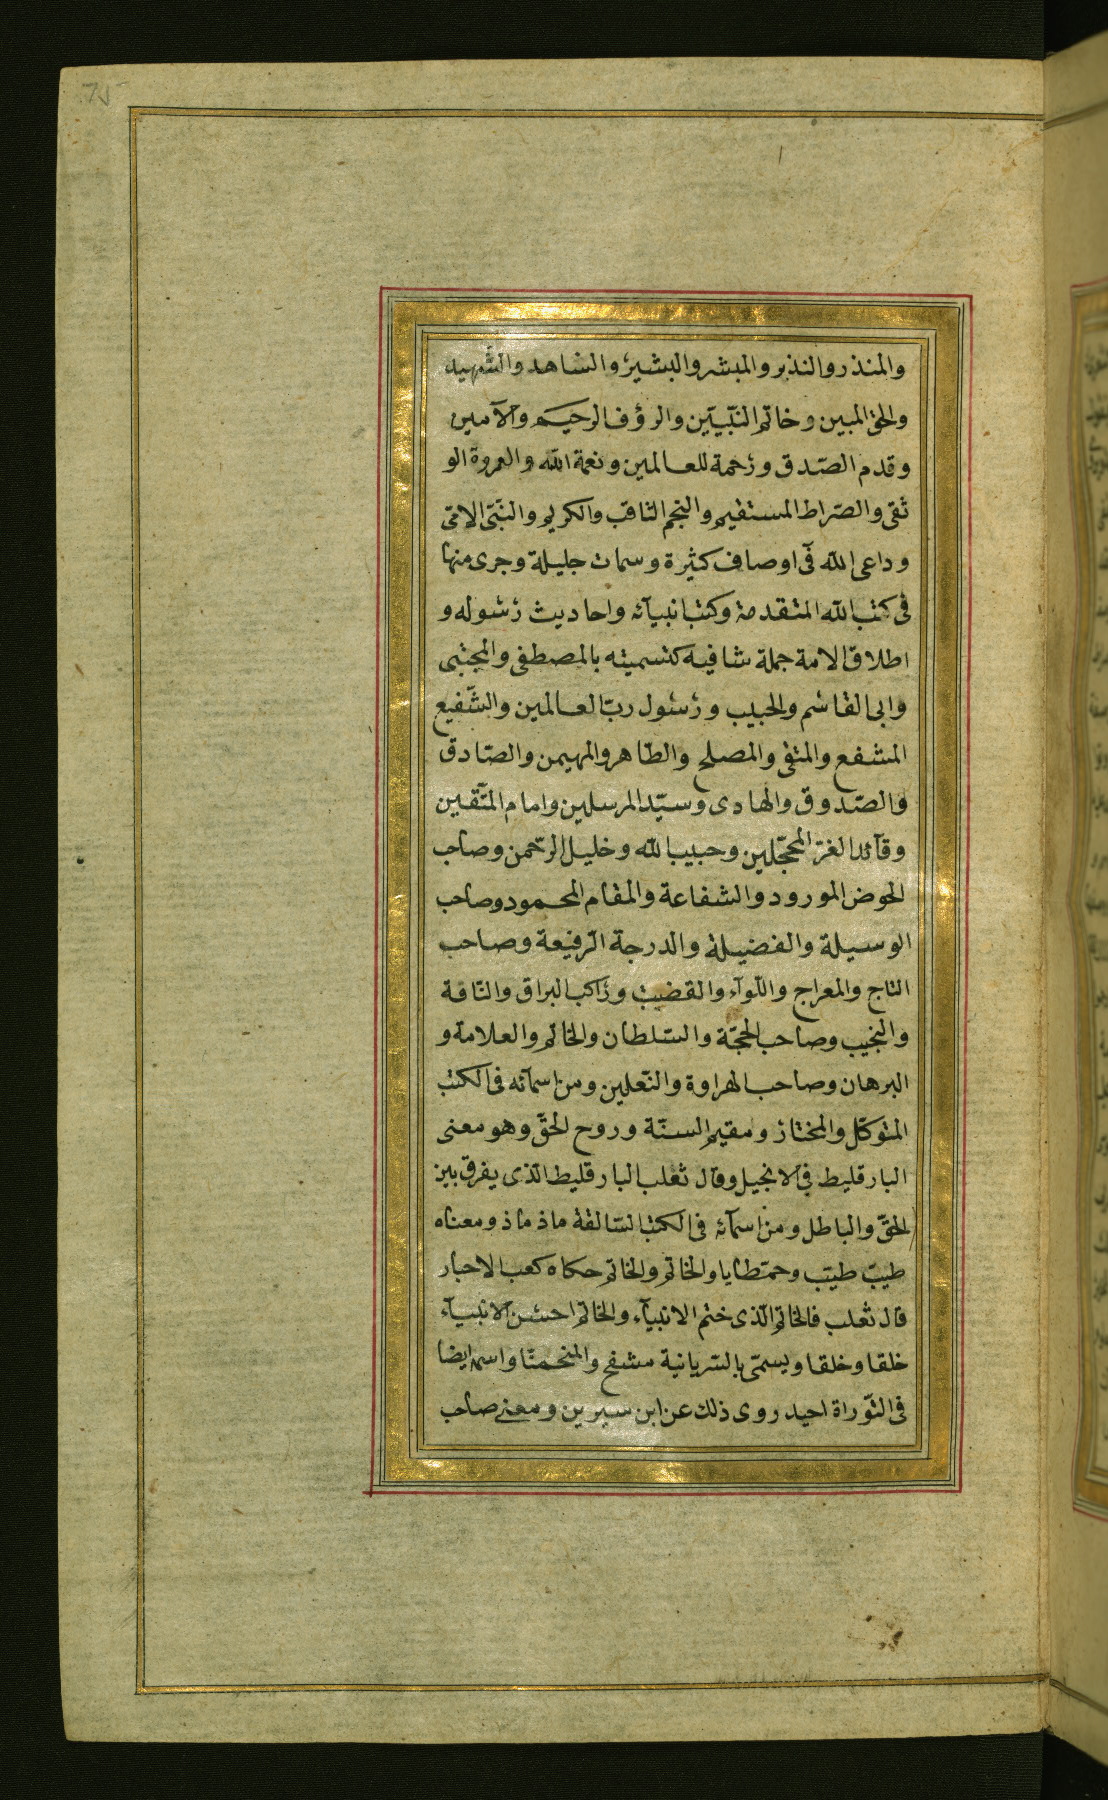 والمنذر والنذير والمبشر والبشير والشاهد والشهيد
والحق المبين وخاتم النّبيّين والرؤف الرحيم والأمين
وقدم الصّدق ورحمة للعالمين ونعمة الله والعروة الو
ثقى والصّراط المستقيم والنجم الثاقب والكريم والنّبّى الامّى
وداعى الله فى اوصاف كثيرة وسمات جليلة وجرى منها
فى كتب الله المتقدمة وكتب انبيآئه واحاديث رسوله و
اطلاق الامة جملة شافية كتسميته بالمصطفى والمجتبى
وابى القاسم والحبيب ورسول ربّ العالمين والشّفيع
المشفع والمتقى والمصلح والطّاهر والمهيمن والصّادق
والصّدوق والهادى وسيّد المرسلين وامام المتّقين
وقآئد الغرّ المحجّلين وحبيب الله وخليل الرّحمن وصاحب
الحوض المورود والشفاعة والمقام المحمود وصاحب
الوسيلة والفضيلة والدرجة الرفيعة وصاحب
التاج والمعراج واللّوآء والقضيب وراكب البراق والنّاقة
والنجيب وصاحب الحجّة والسّلطان والخاتم والعلامة و
البرهان وصاحب الهراوة والنّعلين ومن اسمآئه فى الكتب
المتوكّل والمختار ومقيم السنّة وروح الحقّ وهو معنى
البارقليط فى الانجيل وقال ثعلب البارقليط الّذى يفرق بين
الحقّ والباطل ومن اسمآئه فى الكتب السّالفة ماذ ماذ ومعناه
طيّب طيّب وحمّطايا والخاتم والخاتم حكاه كعب الاحبار
قال ثعلب فالخاتم الّذى ختم الانبيآء والخاتم احسن الانبيآء
خلقا وخلقا ويسمّى بالسّريانية مشفح والمنحمنّا واسمه ايضا
فى التّوراة احيد روى ذلك عن ابن سيرين ومعنى صاحب